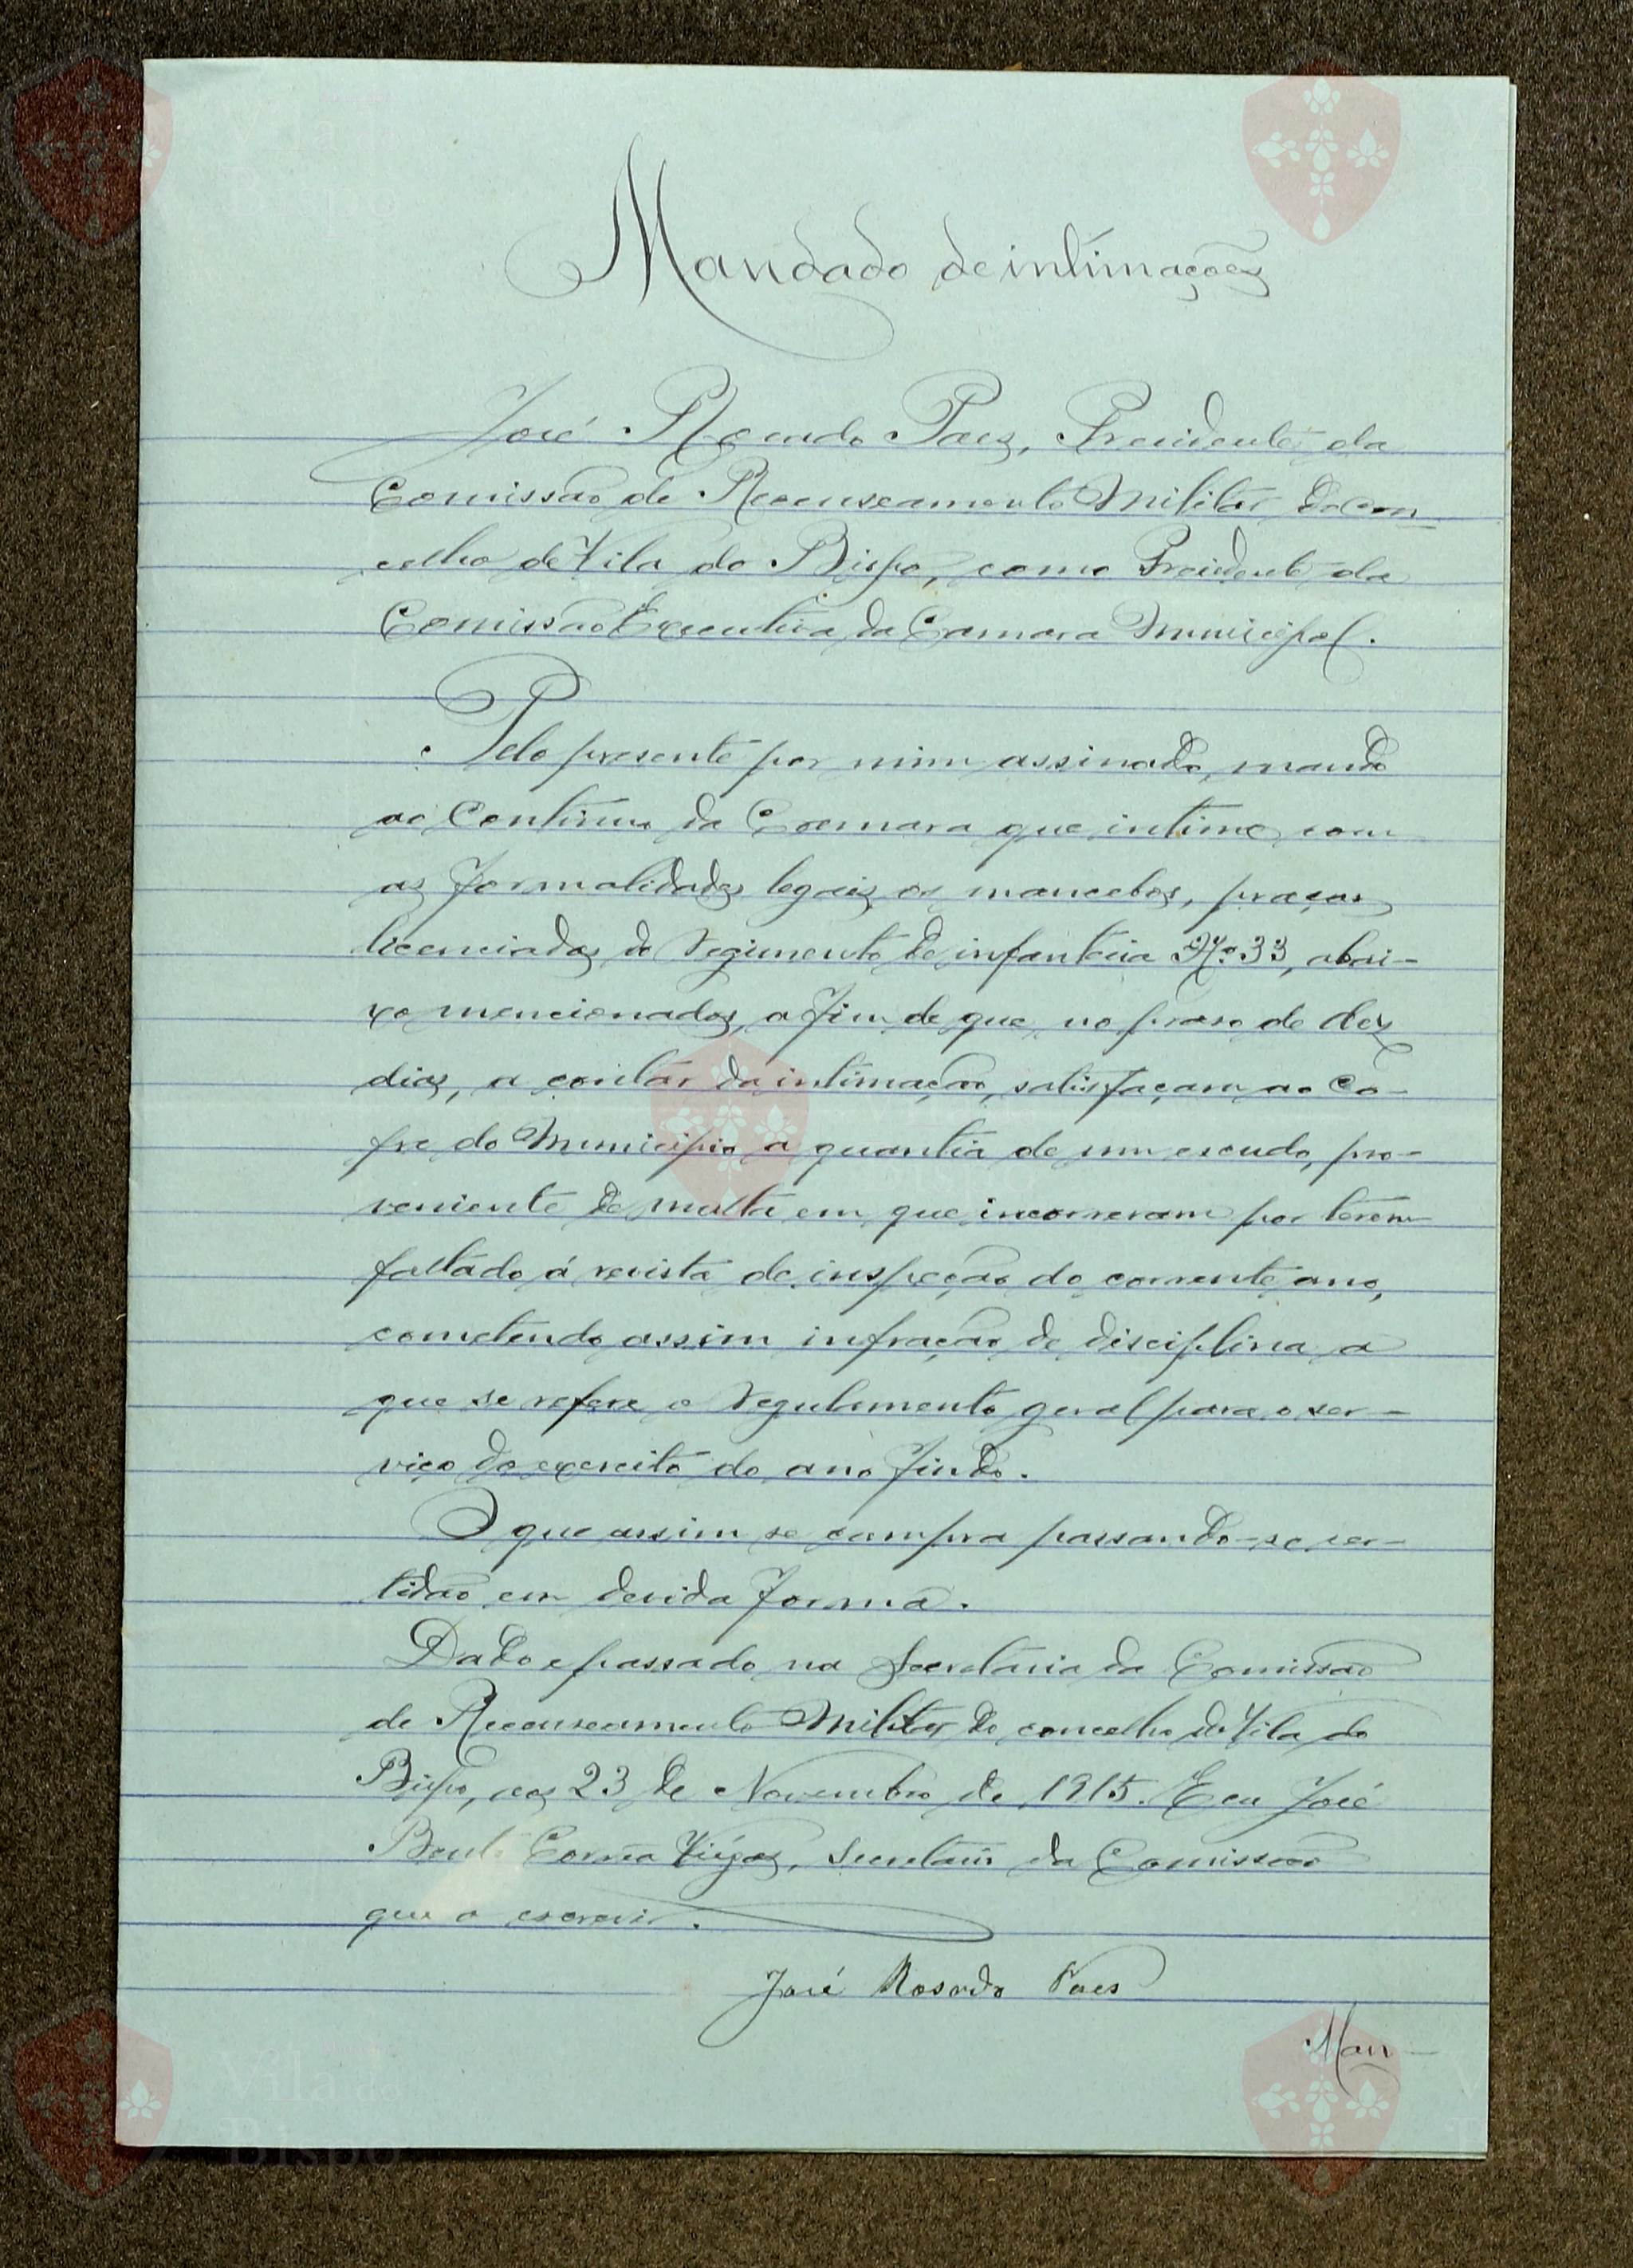 Mandado de intimações
José Rosado Paes, Presidente da
Comissão de Recenseamento Militar do con-
celho de Vila do Bispo, como Presidente da
Comissão Executiva da Camara Municipal.
Pelo presente por mim assinado, mando
ao Continuo da Camara que intime com
as formalidades legais os mancebos, praças
licenciados do regimento de infantaria Nº 33, abai-
xo mencionados, a fim de que no praso de dez
dias, a contar da intimação, satisfaçam ao co-
fre do Municipio a quantia de um escudo, pro-
veniente de multa em que incorreram por terem
faltado á revista de inspeção do corrente ano,
cometendo assim infração de disciplina a
que se refere o regulamento geral para o ser-
viço do exercito do ano findo.
O que assim se cumpra passando-se cer-
tidão em devida forma.
Dado e passado na Secretaria da Comissão
de Recenseamento Militar do concelho de Vila do
Bispo, aos 23 de Novembro de 1915. E eu José
Bento Correia Viégas, Secretario da Comissão
que o escrevi.
José Rosado Paes
Man-
Vila do
Bispo